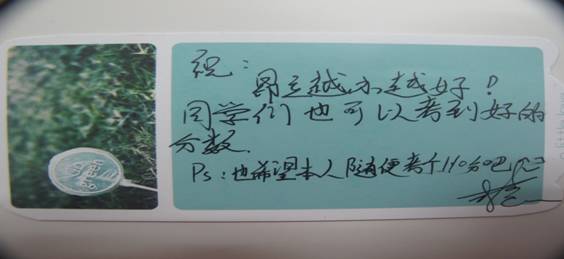 祝：
昂立越办越好！
同学们也可以考到好的
分数.
Ps：也希望本人随便考个110分吧